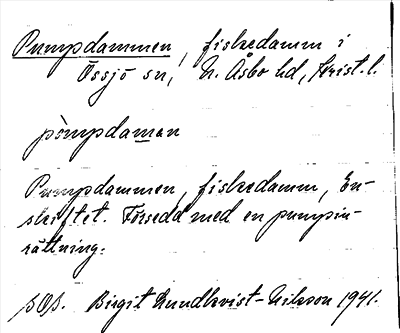 Pumpdammen, fiskedamm i
Össjö sn, N. Åsbo hd, Krist. l.
pòmpdaman
Pumpdammen, fiskedamm, En-
skiftet. Försedd med en pumpin-
rättning.
Birgit Lundkvist-Nilsson 1941.